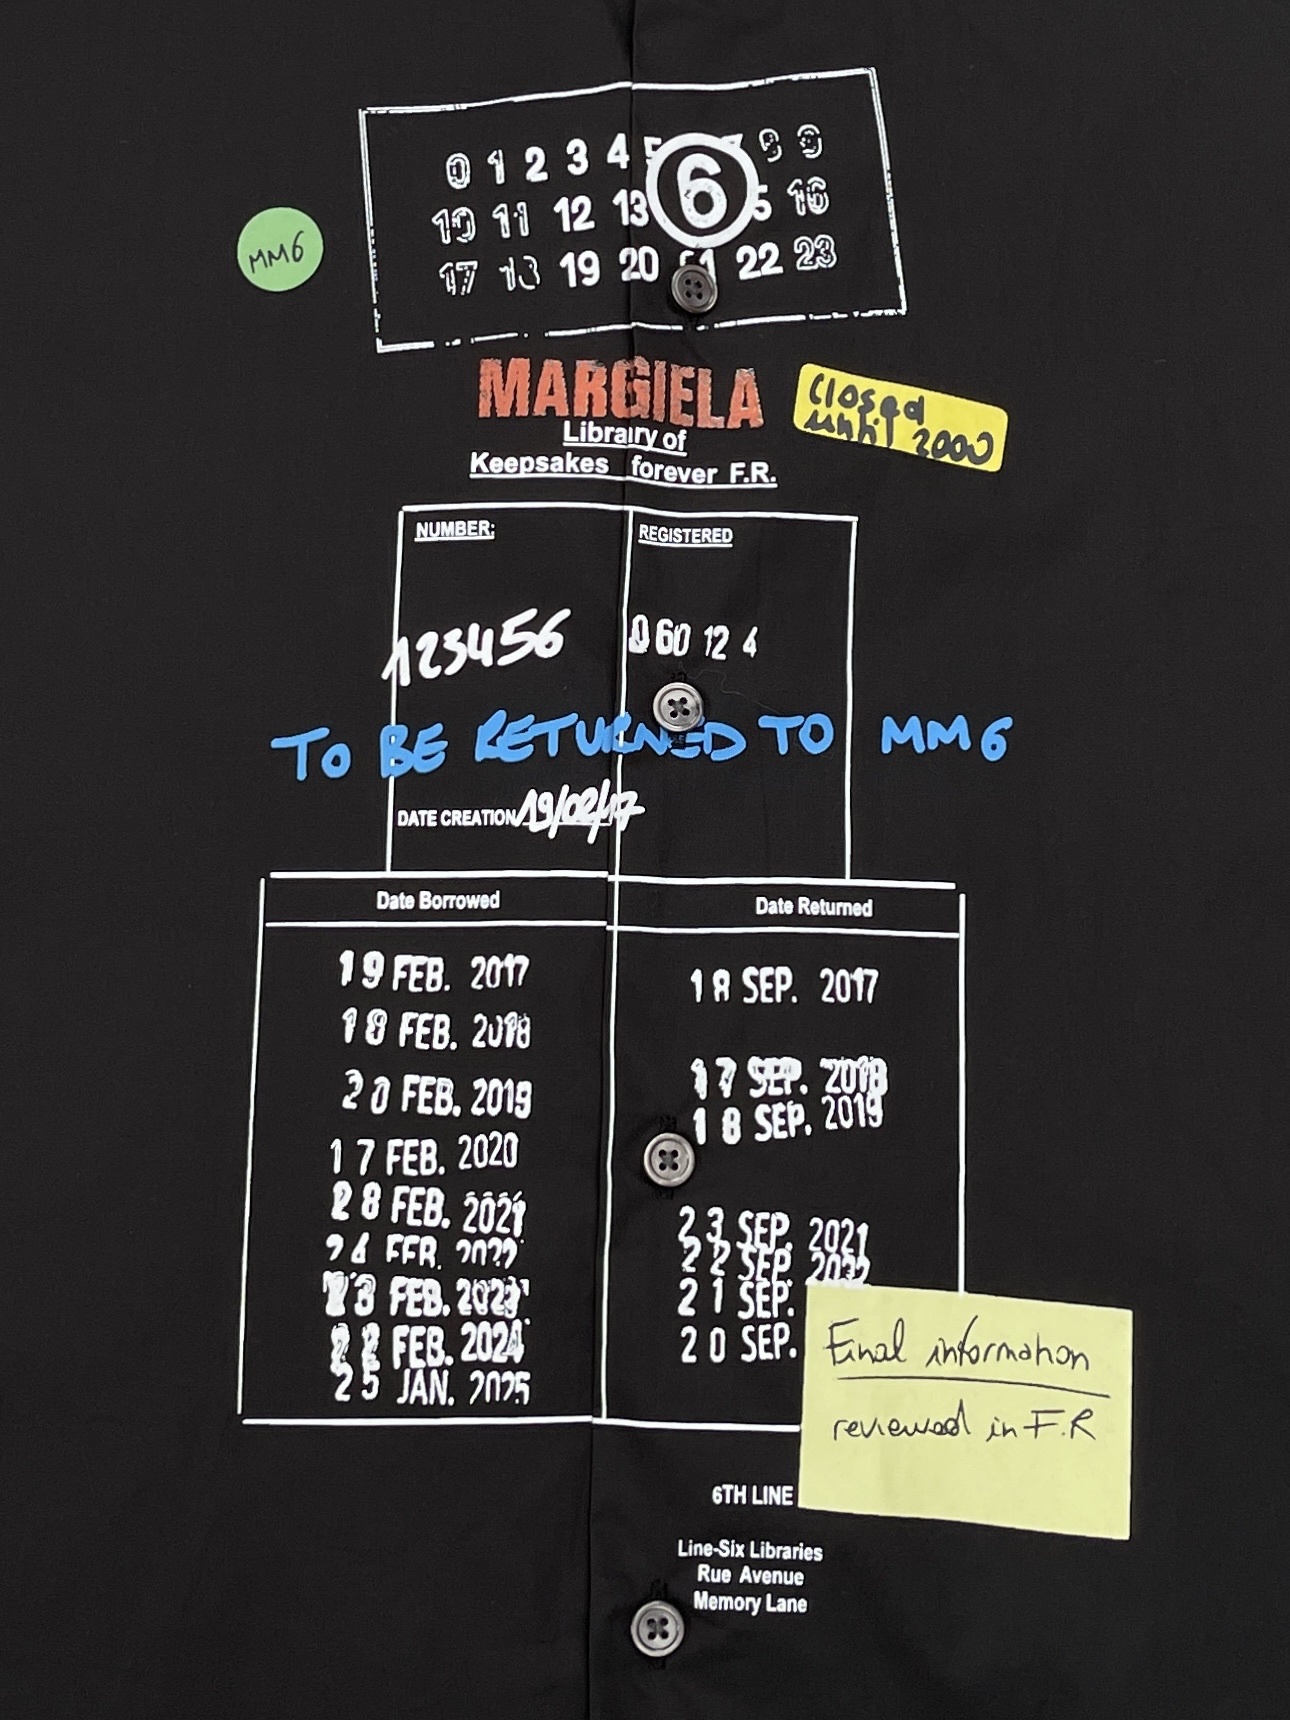 0 1 2 3 4 5 6 7 8 9
10 11 12 13 5 16
17 18 19 20 21 22 23
MM6
MARGIELA
closed
until 2000
Library of
Keepsakes forever F.R.
NUMBER:
REGISTERED
123456
060 12 4
TO BE RETURNED TO MM6
DATE CREATION 19/02/17
Date Borrowed
Date Returned
19 FEB. 2017
18 SEP. 2017
18 FEB. 2018
17 SEP. 2018
20 FEB. 2019
18 SEP. 2019
17 FEB. 2020
28 FEB. 2021
23 SEP. 2021
24 FEB. 2022
22 SEP. 2022
23 FEB. 2023
21 SEP.
22 FEB. 2024
20 SEP.
25 JAN. 2025
Final information
reviewed in F.R
6TH LINE
Line-Six Libraries
Rue Avenue
Memory Lane